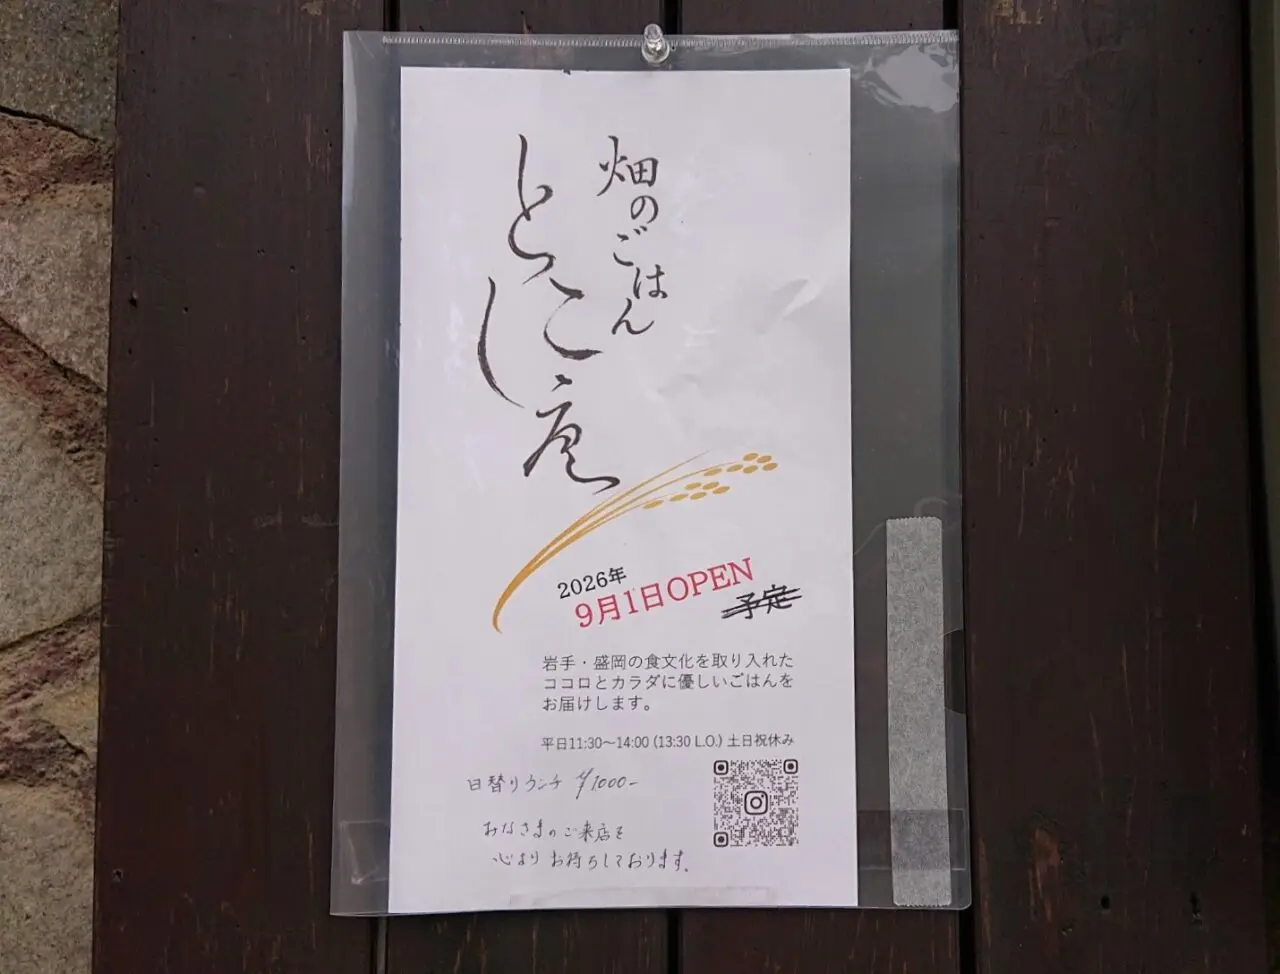 畑のごはん
とこし庵
2026年
9月1日OPEN
予定
岩手・盛岡の食文化を取り入れた
ココロとカラダに優しいごはんを
お届けします。
平日11:30〜14:00 (13:30 L.O.) 土日祝休み
日替りランチ ¥1000-
みなさまのご来店を
心よりお待ちしております。